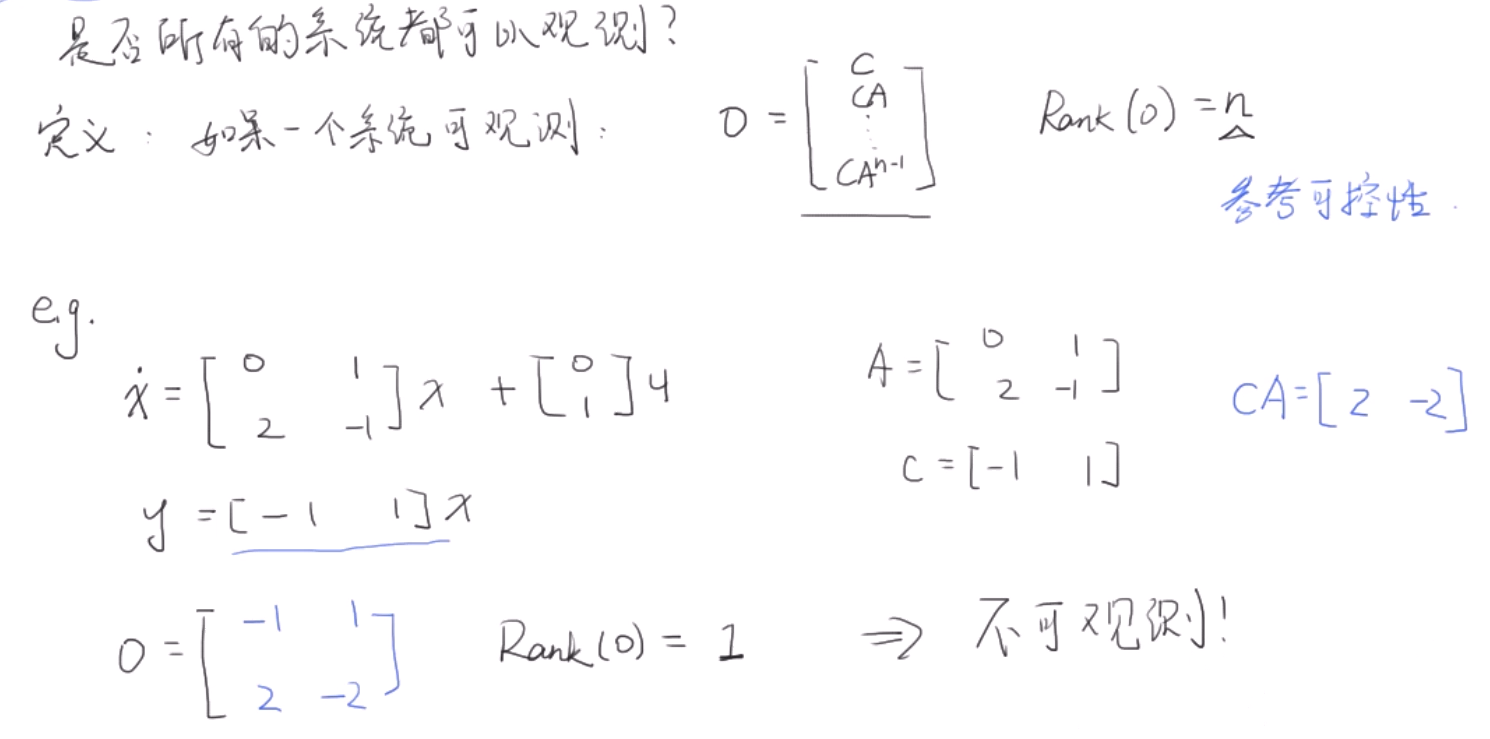 是否所有的系统都可以观测?
定义: 如果一个系统可观测: O = [ C CA ⋮ CAⁿ⁻¹ ] Rank(O) = n
参考可控性.
e.g.
ẋ = [ 0 1 ; 2 -1 ] x + [ 0 ; 1 ] u A = [ 0 1 ; 2 -1 ] CA = [ 2 -2 ]
y = [ -1 1 ] x C = [ -1 1 ]
O = [ -1 1 ; 2 -2 ] Rank(O) = 1 ⇒ 不可观测!